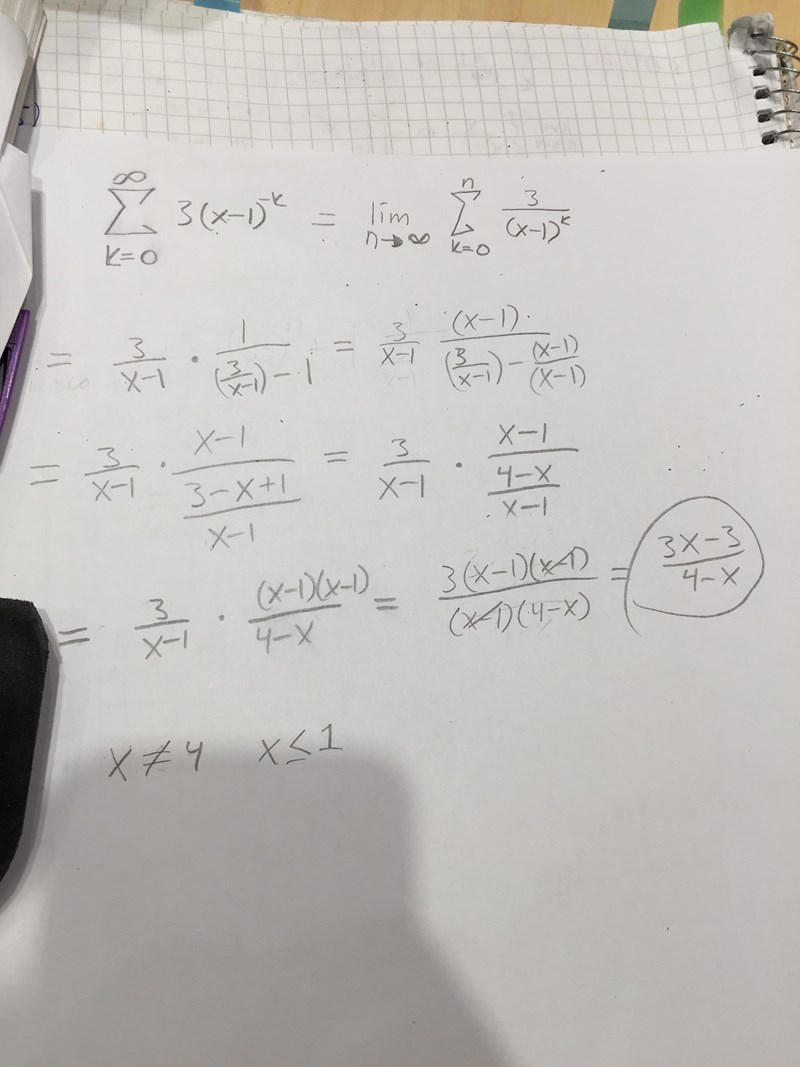 ∞ Σ k=0 3(x-1)^-k = lim n→∞ n Σ k=0 3/(x-1)^k
= 3/(x-1) · 1/((3/(x-1))-1) = 3/(x-1) (x-1)/((3/(x-1))-(x-1)/(x-1))
= 3/(x-1) · (x-1)/((3-x+1)/(x-1)) = 3/(x-1) · (x-1)/((4-x)/(x-1))
= 3/(x-1) · (x-1)(x-1)/(4-x) = 3(x-1)(x-1)/((x-1)(4-x)) = (3x-3)/(4-x)
x ≠ 4 x ≤ 1